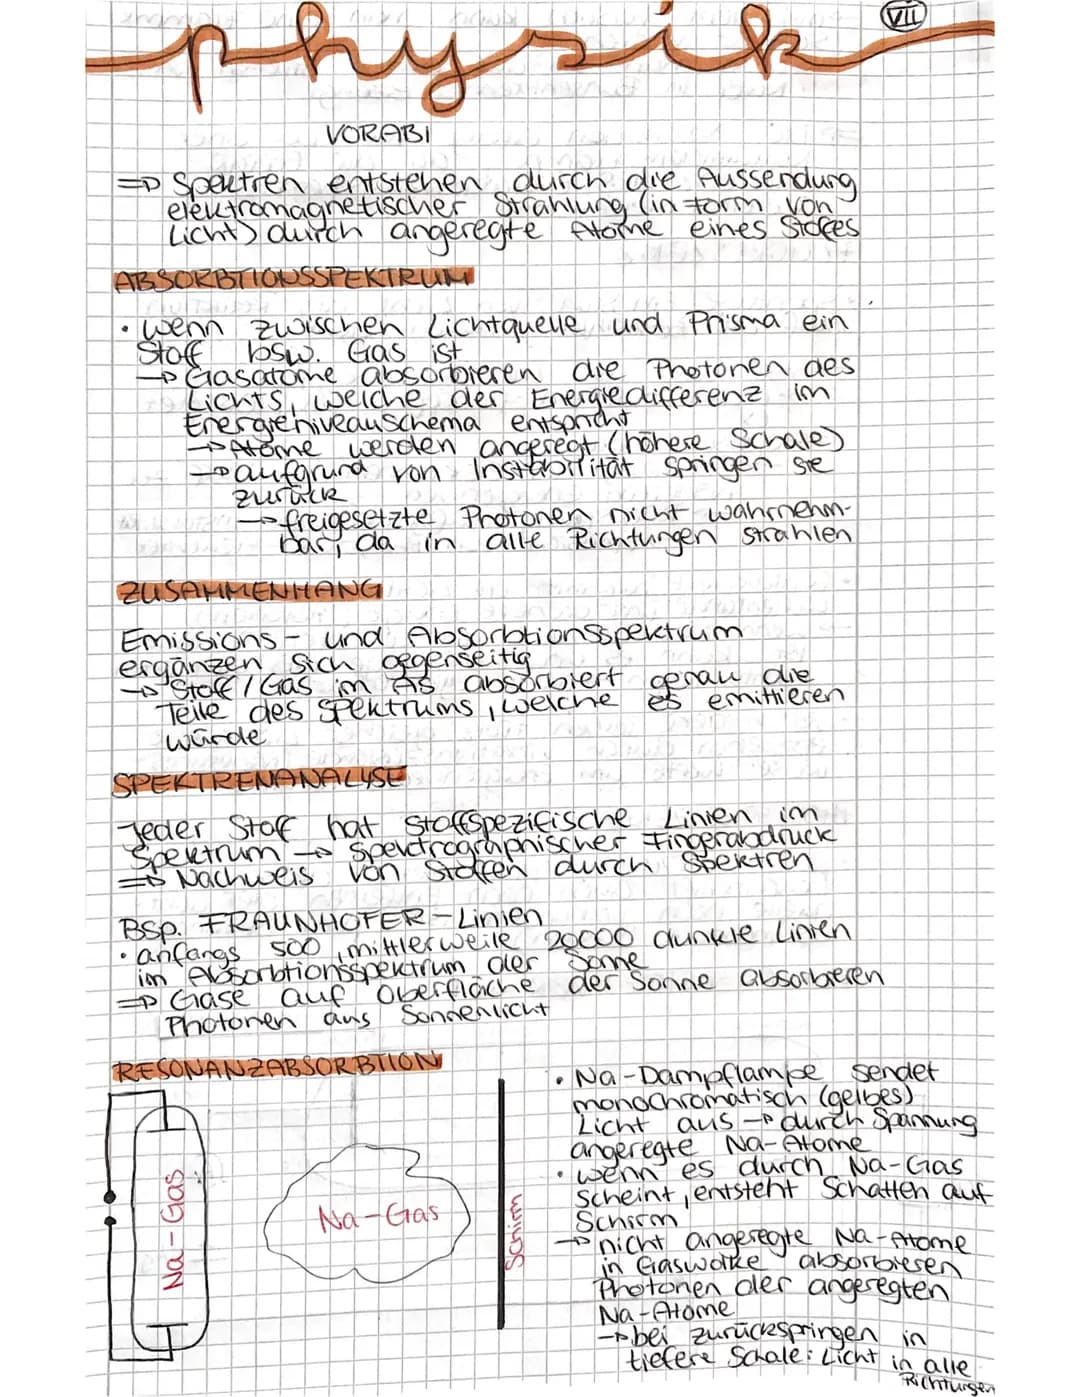 physik
VII
VORABI
=> Spektren entstehen durch die Aussendung
elektromagnetischer Strahlung (in Form von
Licht) durch angeregte Atome eines Stoffes
ABSORBTIONSSPEKTRUM
• wenn zwischen Lichtquelle und Prisma ein
Stoff bsw. Gas ist
→ Gasatome absorbieren die Photonen des
Lichts, welche der Energiedifferenz im
Energieniveauschema entspricht
→ Atome werden angeregt (höhere Schale)
→ aufgrund von Instabilität springen sie
zurück
→ freigesetzte Photonen nicht wahrnehm-
bar, da in alle Richtungen strahlen
ZUSAMMENHANG
Emissions- und Absorbtionsspektrum
ergänzen sich gegenseitig
→ Stoff/Gas im AS absorbiert genau die
Teile des Spektrums, welche es emittieren
würde
SPEKTRENANALYSE
Jeder Stoff hat stoffspezifische Linien im
Spektrum → Spektrographischer Fingerabdruck
=> Nachweis von Stoffen durch Spektren
Bsp. FRAUNHOFER-Linien
• anfangs 500, mittlerweile 20000 dunkle Linien
im Absorbtionsspektrum der Sonne
=> Gase auf Oberfläche der Sonne absorbieren
Photonen aus Sonnenlicht
RESONANZABSORBTION
Na-Gas
Na-Gas
Schirm
• Na-Dampflampe sendet
monochromatisch (gelbes)
Licht aus → durch Spannung
angeregte Na-Atome
• wenn es durch Na-Gas
scheint, entsteht Schatten auf
Schirm
→ nicht angeregte Na-Atome
in Gaswolke absorbieren
Photonen der angeregten
Na-Atome
→ bei zurückspringen in
tiefere Schale: Licht in alle
Richtungen